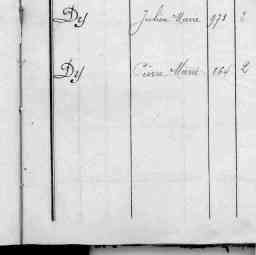 Dy Julien Marie 973 2
Dy Pierre Marie 164 2